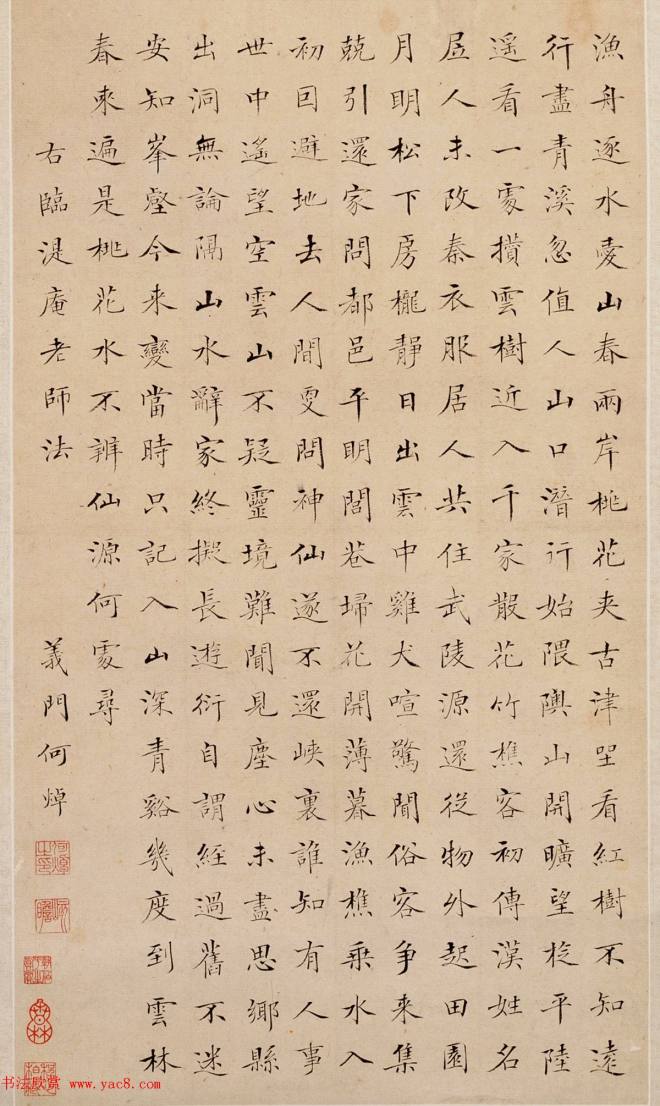 漁舟逐水愛山春兩岸桃花夾古津坐看紅樹不知遠
行盡青溪忽值人山口潛行始隈隩山開曠望旋平陸
遥看一處攢雲樹近入千家散花竹樵客初傳漢姓名
居人未改秦衣服居人共住武陵源還從物外起田園
月明松下房櫳靜日出雲中雞犬喧驚聞俗客争来集
競引還家問都邑平明閭巷埽花開薄暮漁樵乗水入
初因避地去人間更問神仙遂不還峽裏誰知有人事
世中遙望空雲山不疑靈境難聞見塵心未盡思鄉縣
出洞無論隔山水辭家終擬長遊衍自謂經過舊不迷
安知峯壑今来變當時只記入山深青谿幾度到雲林
春來遍是桃花水不辨仙源何處尋
右臨湜庵老師法 義門何焯
何焯之印
屺瞻
书法欣赏 www.yac8.com